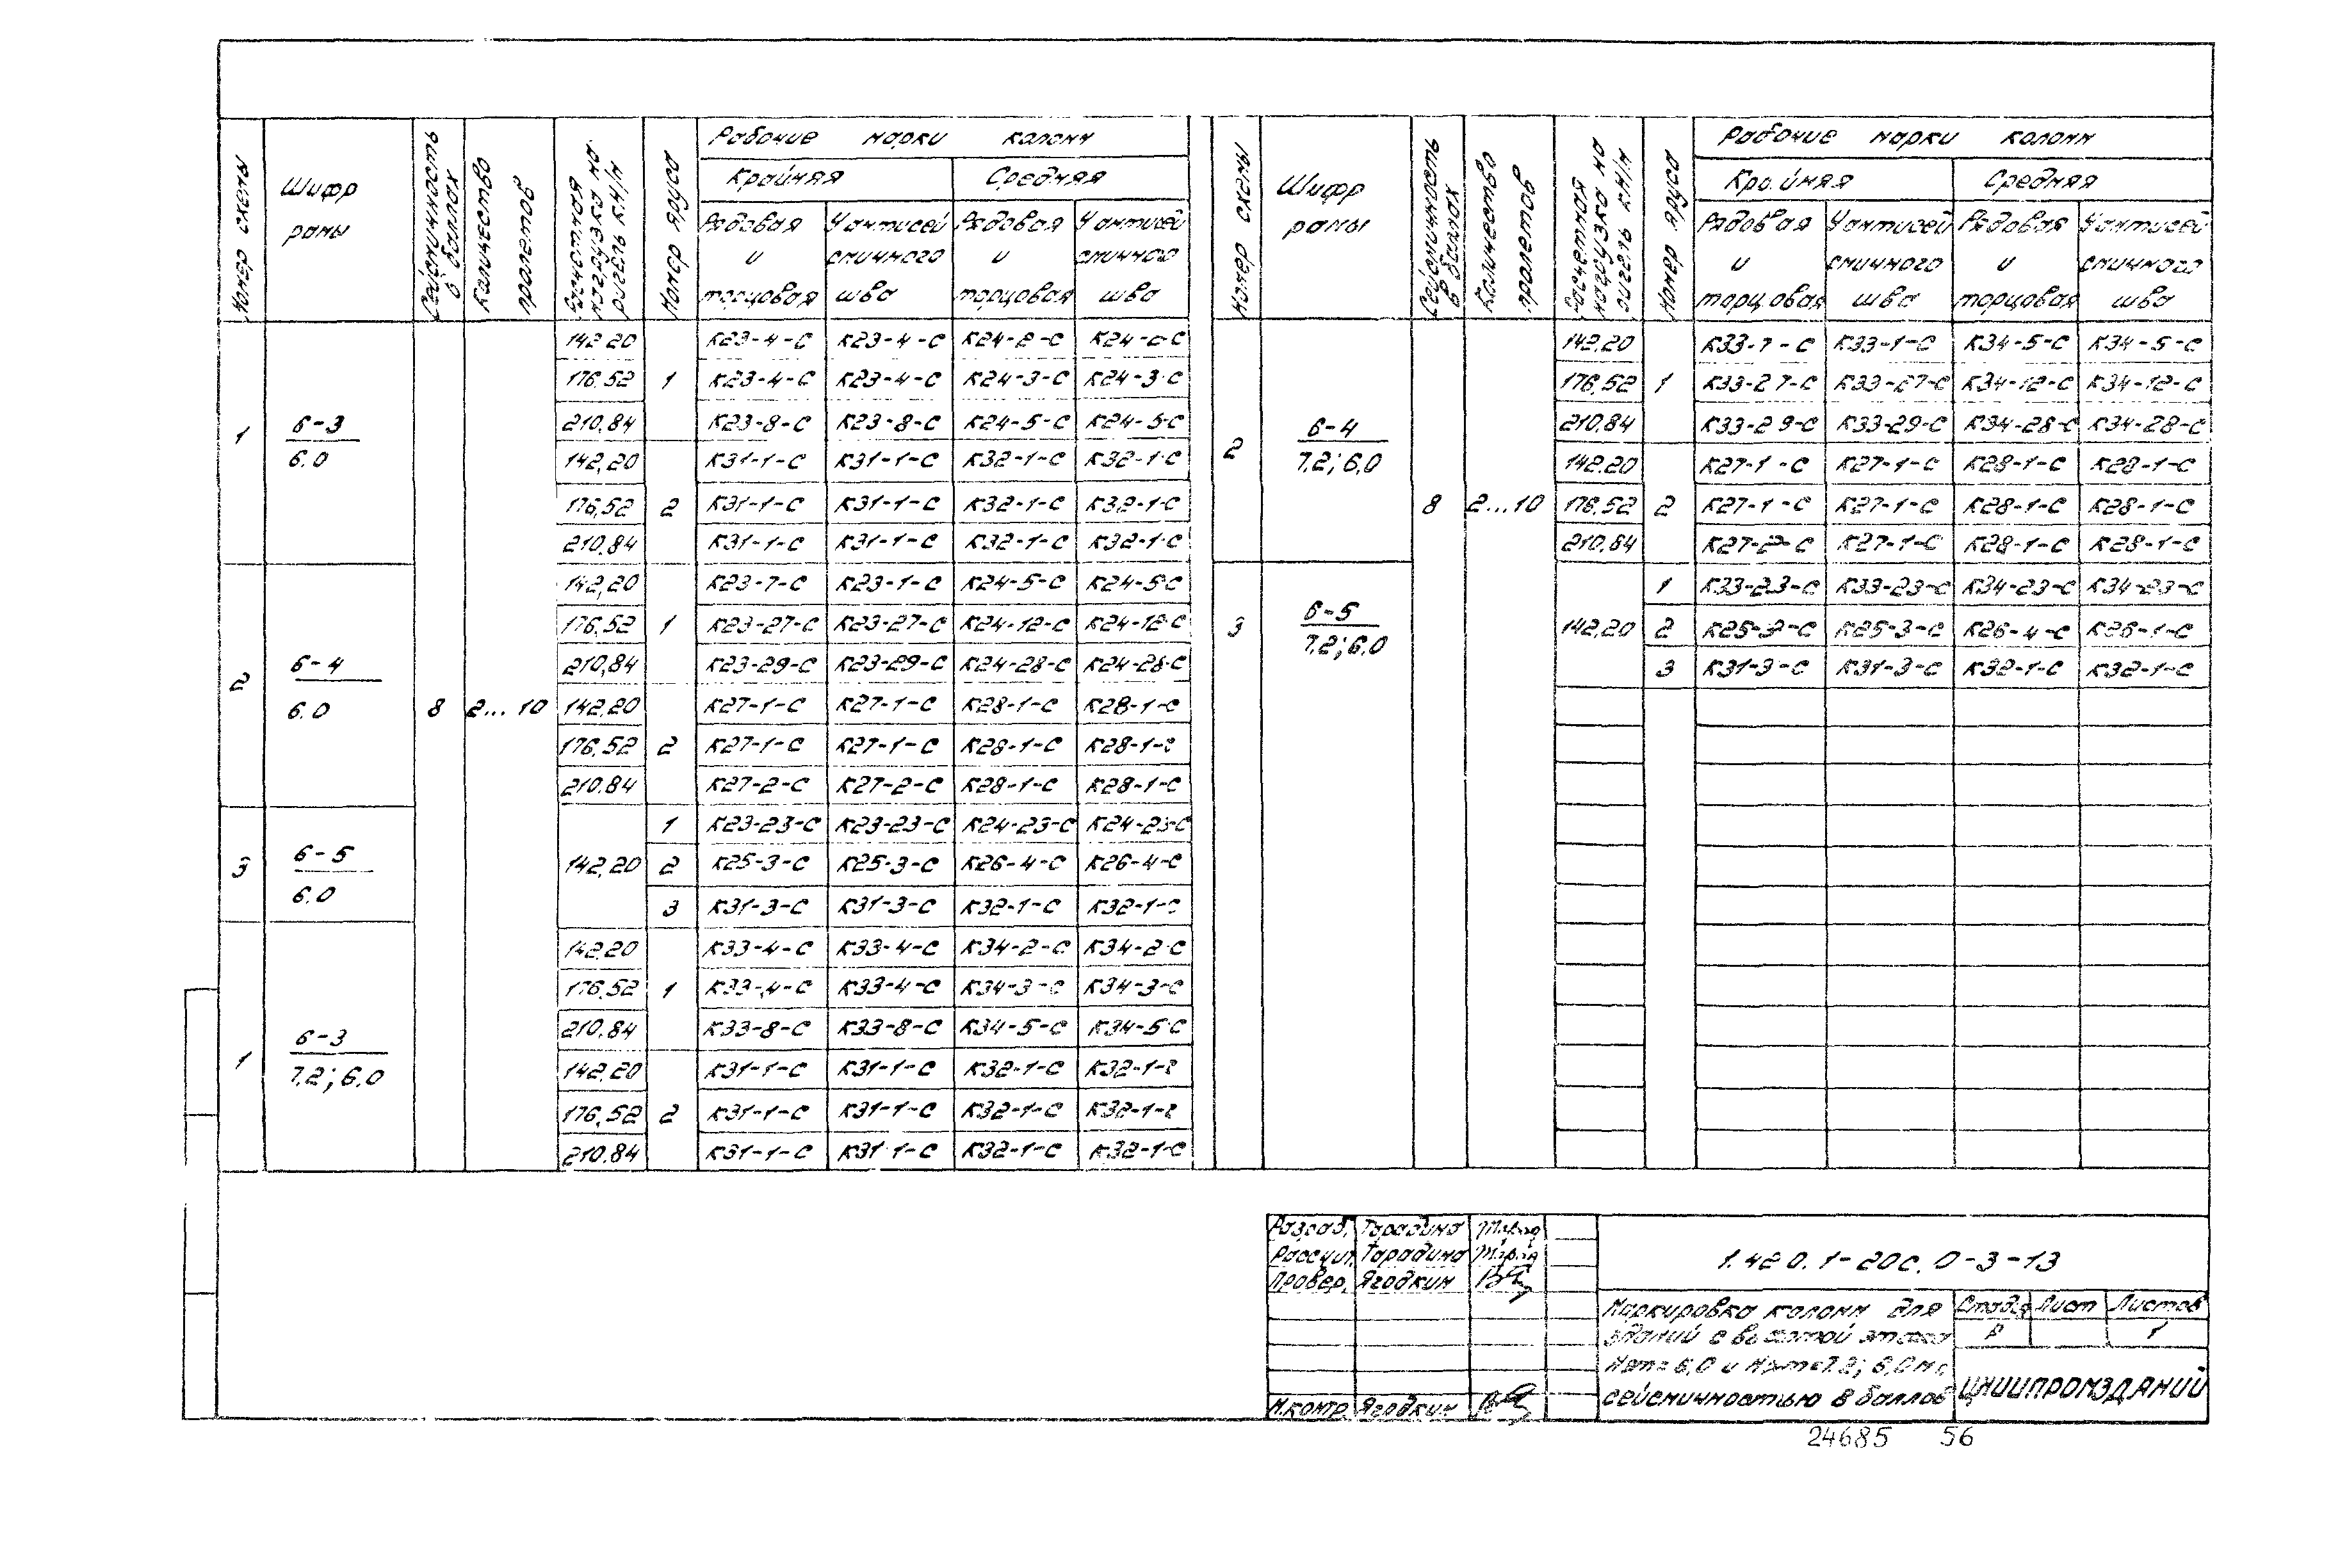 Номер схемы
Шифр рамы
Сейсмичность в баллах
Количество пролетов
Расчетная нагрузка на ригель кН/м
Номер яруса
Рабочие марки колонн
Крайняя Средняя
Рядовая и торцовая
У антисейсмичного шва
Рядовая и торцовая
У антисейсмичного шва
1 6-3 6.0
8 2...10
142,20 1 К23-4-С К23-4-С К24-2-С К24-2-С
176,52 К23-4-С К23-4-С К24-3-С К24-3-С
210,84 К23-8-С К23-8-С К24-5-С К24-5-С
142,20 2 К31-1-С К31-1-С К32-1-С К32-1-С
176,52 К31-1-С К31-1-С К32-1-С К32-1-С
210,84 К31-1-С К31-1-С К32-1-С К32-1-С
2 6-4 6.0
142,20 1 К23-7-С К23-1-С К24-5-С К24-5-С
176,52 К23-27-С К23-27-С К24-12-С К24-12-С
210,84 К23-29-С К23-29-С К24-28-С К24-28-С
142,20 2 К27-1-С К27-1-С К28-1-С К28-1-С
176,52 К27-1-С К27-1-С К28-1-С К28-1-С
210.84 К27-2-С К27-2-С К28-1-С К28-1-С
3 6-5 6.0
142,20 1 К23-23-С К23-23-С К24-23-С К24-23-С
2 К25-3-С К25-3-С К26-4-С К26-4-С
3 К31-3-С К31-3-С К32-1-С К32-1-С
1 6-3 7.2; 6.0
142,20 1 К33-4-С К33-4-С К34-2-С К34-2-С
176,52 К33-4-С К33-4-С К34-3-С К34-3-С
210,84 К33-8-С К33-8-С К34-5-С К34-5-С
142,20 2 К31-1-С К31-1-С К32-1-С К32-1-С
176,52 К31-1-С К31-1-С К32-1-С К32-1-С
210.84 К31-1-С К31-1-С К32-1-С К32-1-С
Номер схемы
Шифр рамы
Сейсмичность в баллах
Количество пролетов
Расчетная нагрузка на ригель кН/м
Номер яруса
Рабочие марки колонн
Крайняя Средняя
Рядовая и торцовая
У антисейсмичного шва
Рядовая и торцовая
У антисейсмичного шва
2 6-4 7.2; 6.0
8 2...10
142,20 1 К33-7-С К33-1-С К34-5-С К34-5-С
176,52 К33-27-С К33-27-С К34-12-С К34-12-С
210,84 К33-29-С К33-29-С К34-28-С К34-28-С
142.20 2 К27-1-С К27-1-С К28-1-С К28-1-С
176,52 К27-1-С К27-1-С К28-1-С К28-1-С
210,84 К27-2-С К27-1-С К28-1-С К28-1-С
3 6-5 7.2; 6.0
142,20 1 К33-23-С К33-23-С К34-23-С К34-23-С
2 К25-3-С К25-3-С К26-4-С К26-1-С
3 К31-3-С К31-3-С К32-1-С К32-1-С
Разраб. Тарадина
Рассчит. Тарадина
Провер. Ягодкин
Н.контр. Ягодкин
1.420.1-20с.0-3-13
Маркировка колонн для
зданий с высотой этажа
Нэт=6,0 и Нэт=7.2; 6,0 м с
сейсмичностью 8 баллов
Стадия Лист Листов
Р 1
ЦНИИПРОМЗДАНИЙ
24685 56